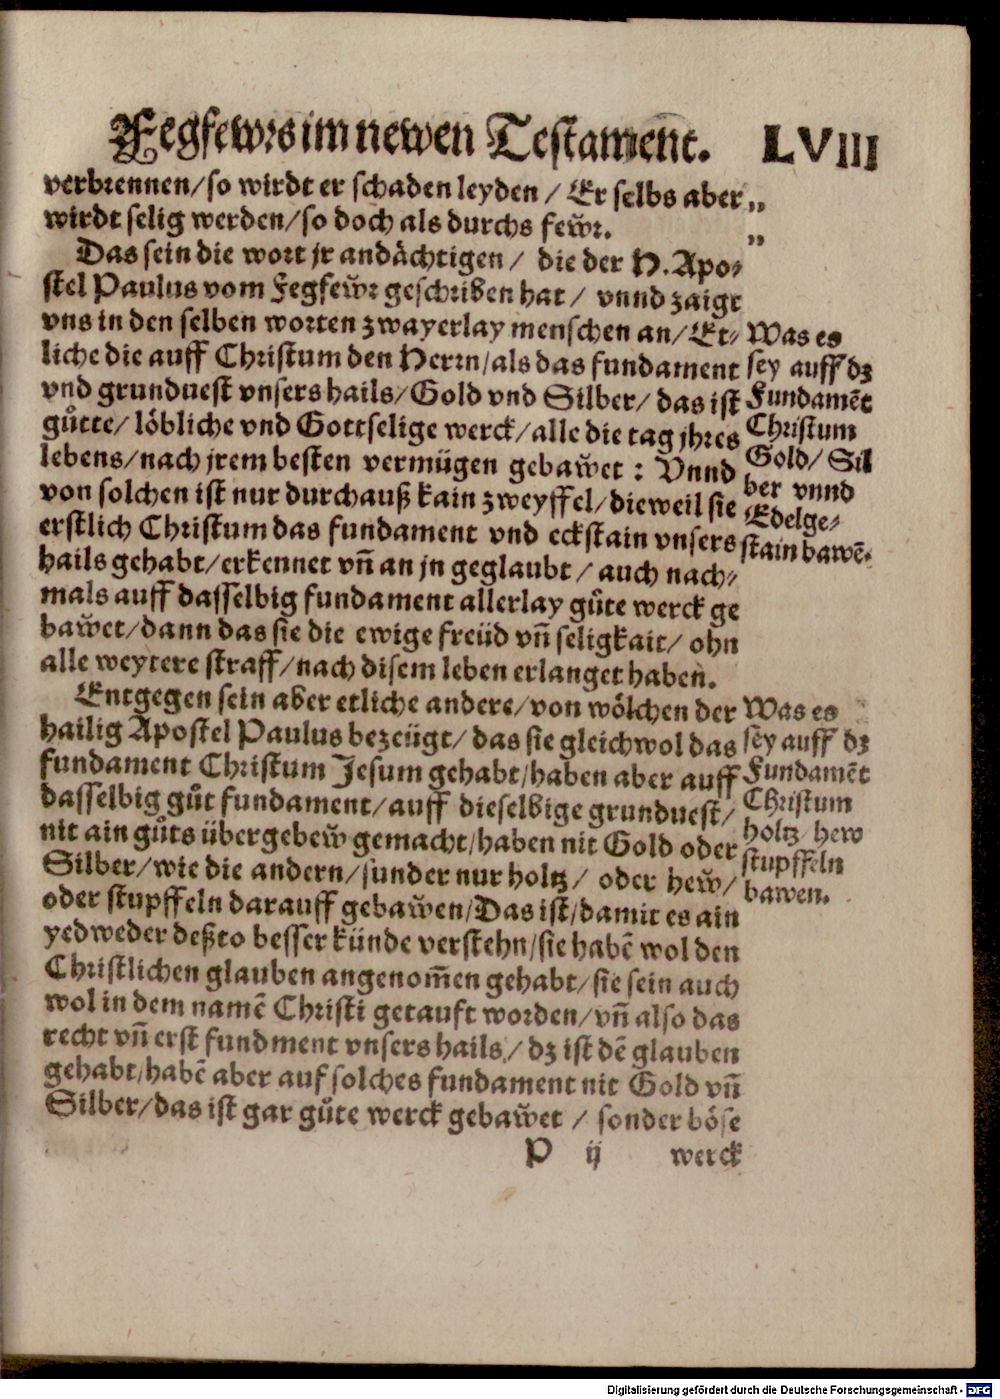 Fegfewrs im newen Testament. LVIII
verbrennen/so wirdt er schaden leyden / Er selbs aber „
wirdt selig werden/so doch als durchs few̆r. „
Das sein die wort jr andächtigen / die der H. Apo-
stel Paulus vom Fegfew̆r geschriben hat / vnnd zaigt
vns in den selben worten zwayerlay menschen an/Et-
liche die auff Christum den Herrn/als das fundament
vnd grunduest vnsers hails/Gold vnd Silber/ das ist
gůtte/ löbliche vnd Gottselige werck/alle die tag jhres
lebens/nach jrem besten vermügen gebaw̆et : Vnnd
von solchen ist nur durchauß kain zweyffel/dieweil sie
erstlich Christum das fundament vnd eckstain vnsers
hails gehabt/erkennet vñ an jn geglaubt / auch nach-
mals auff dasselbig fundament allerlay gůte werck ge
baw̆et/dann das sie die ewige freüd vñ seligkait/ ohn
alle weytere straff/nach disem leben erlanget haben.
Was es
sey auff dz
Fundamẽt
Christum
Gold/ Sil
ber vnnd
Edelge-
stain bawẽ.
Entgegen sein aber etliche andere/von wölchen der
hailig Apostel Paulus bezeügt/das sie gleichwol das
fundament Christum Jesum gehabt/haben aber auff
dasselbig gůt fundament/auff dieselbige grunduest/
nit ain gůts übergebew̆ gemacht/haben nit Gold oder
Silber/wie die andern/sunder nur holtz/ oder hew̆/
oder stupffeln darauff gebaw̆en/Das ist/damit es ain
yedweder deßto besser künde verstehn/sie habẽ wol den
Christlichen glauben angenom̃en gehabt/sie sein auch
wol in dem namẽ Christi getauft worden/vñ also das
recht vñ erst fundment vnsers hails/ dz ist dẽ glauben
gehabt/habẽ aber auf solches fundament nit Gold vñ
Silber/das ist gar gůte werck gebaw̆et / sonder böse
Was es
sey auff dz
Fundamẽt
Christum
holtz/ hew
stupffeln
bawen.
P ij werck
Digitalisierung gefördert durch die Deutsche Forschungsgemeinschaft - DFG